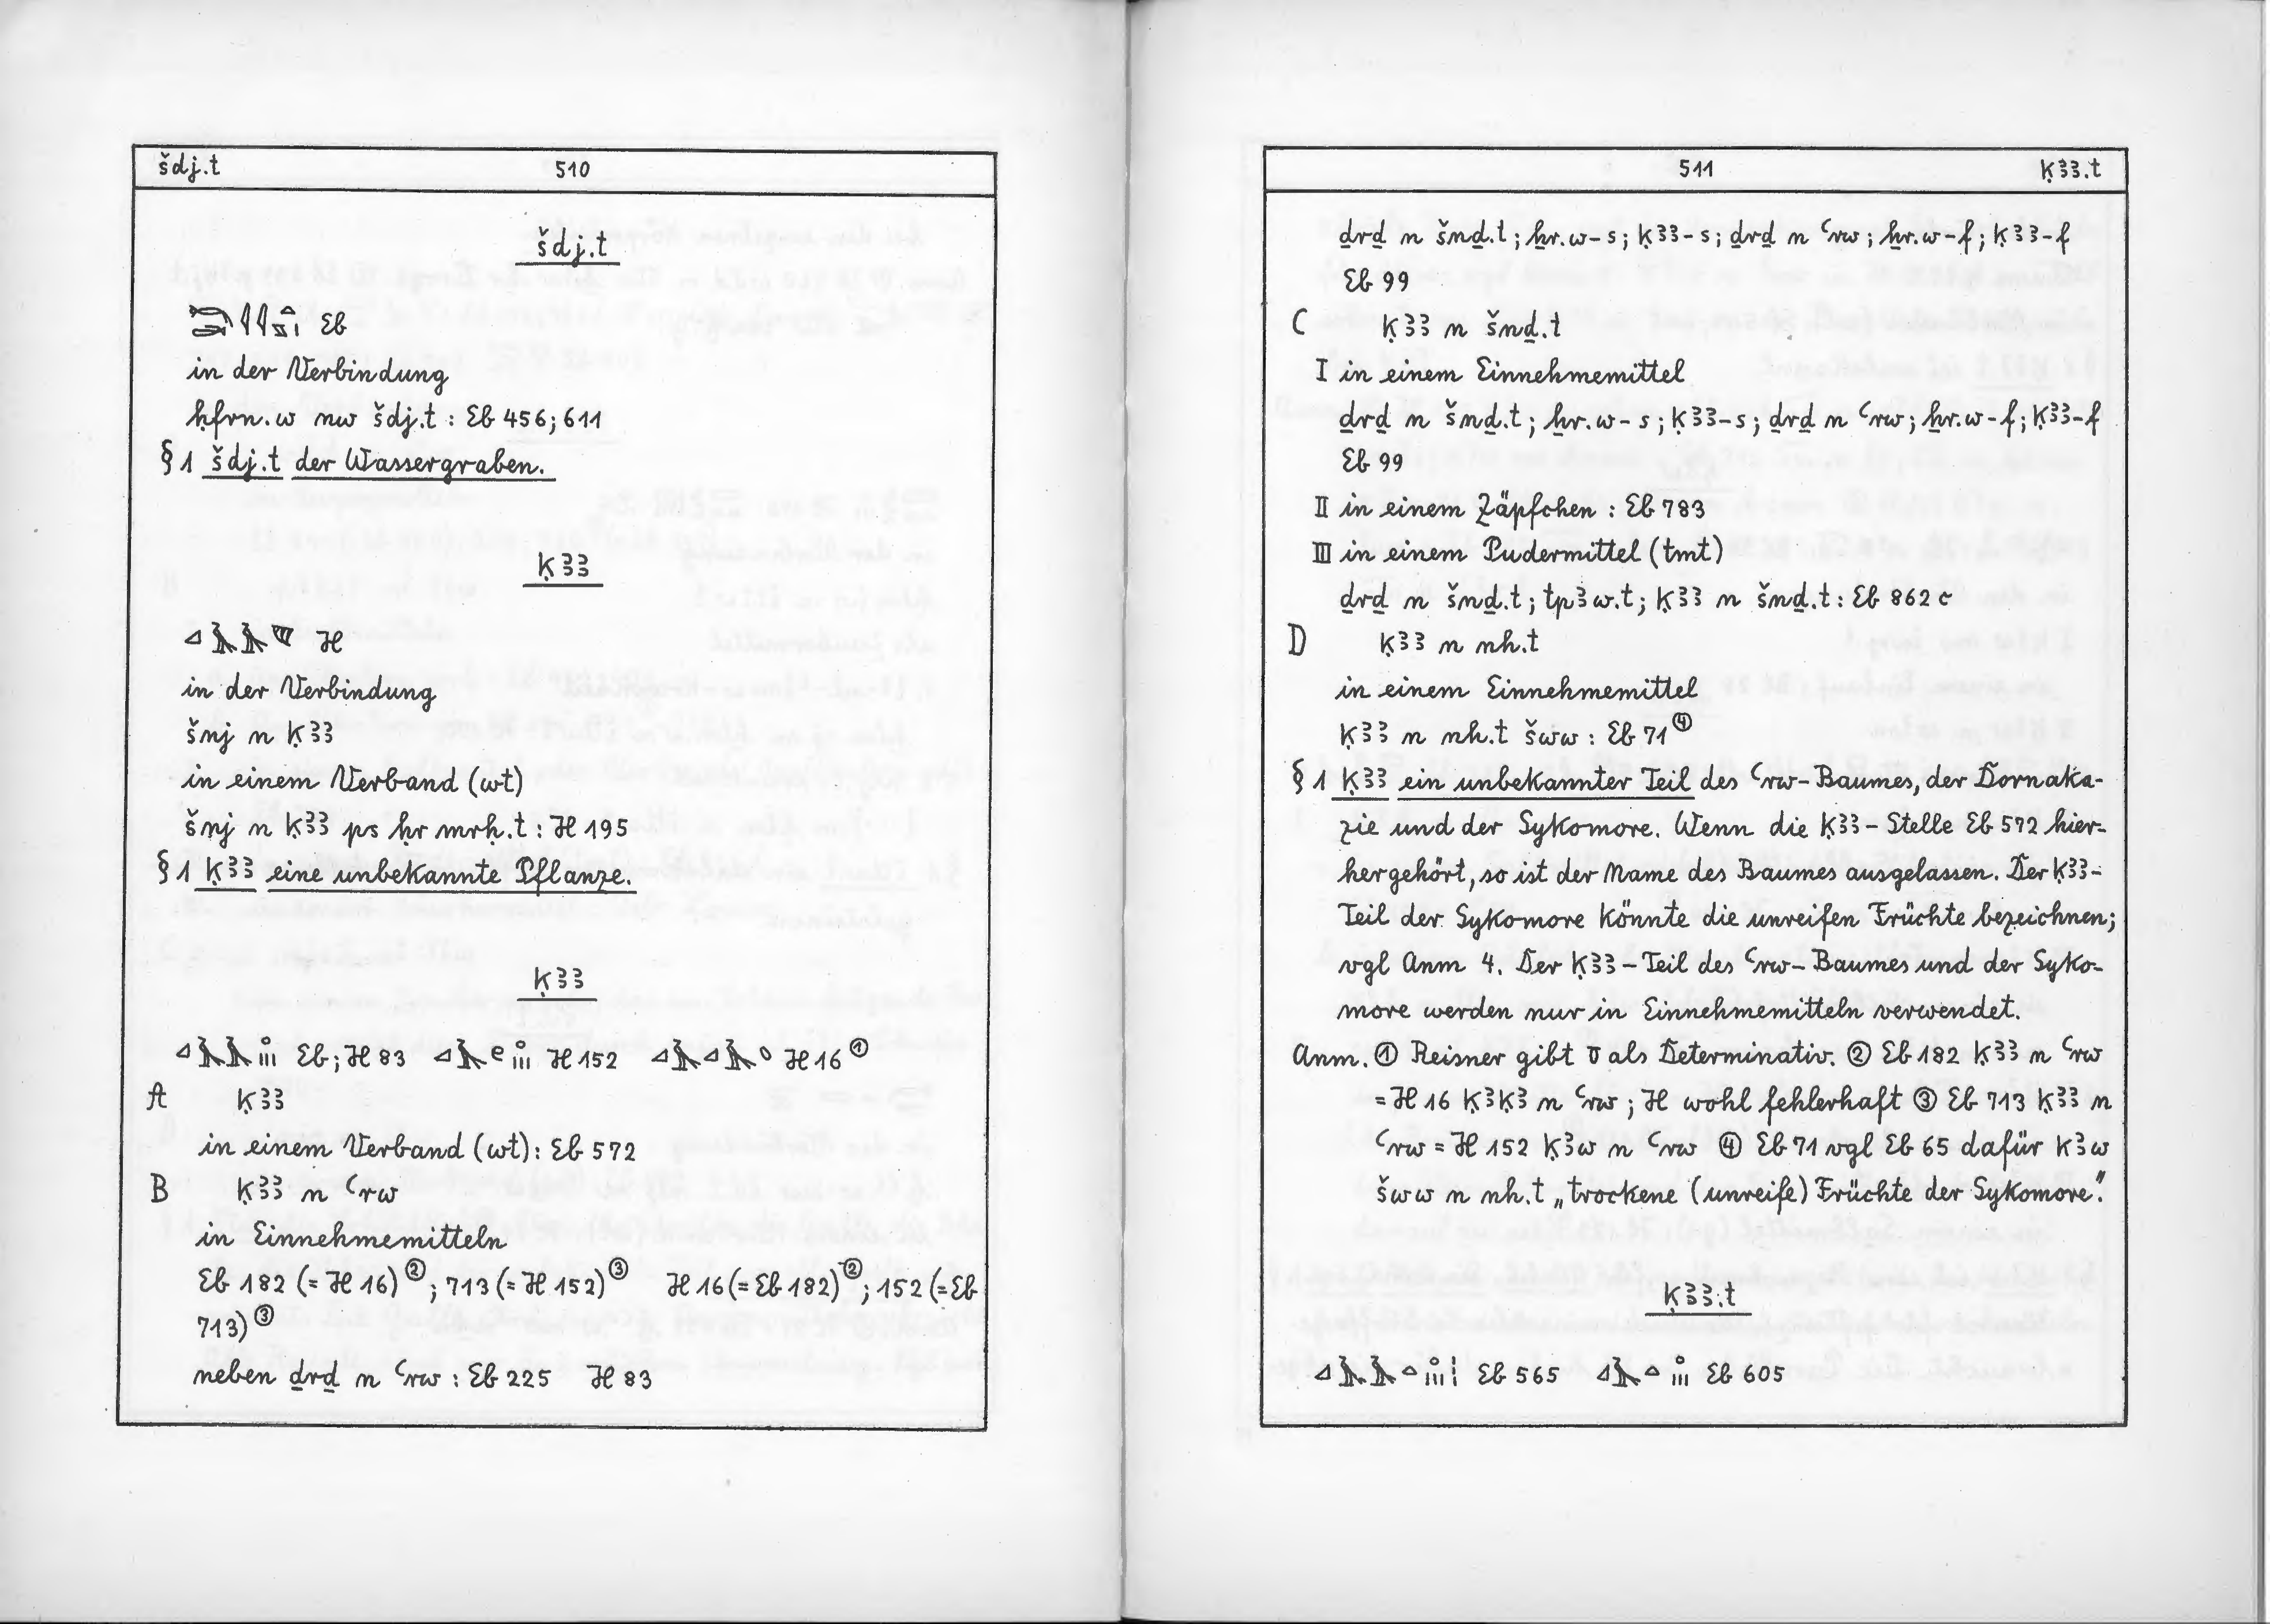 šdj.t 510
šdj.t
Eb
in der Verbindung
ḥfrn.w nw šdj.t : Eb 456; 611
§ 1 šdj.t der Wassergraben.
ḳꜣꜣ
H
in der Verbindung
šnj n ḳꜣꜣ
in einem Verband (wt)
šnj n ḳꜣꜣ ps ḥr mrḥ.t : H 195
§ 1 ḳꜣꜣ eine unbekannte Pflanze.
ḳꜣꜣ
Eb; H 83 H 152 H 16 ①
A ḳꜣꜣ
in einem Verband (wt): Eb 572
B ḳꜣꜣ n ꜥrw
in Einnehmemitteln
Eb 182 (= H 16) ②; 713 (= H 152) ③ H 16 (= Eb 182) ②; 152 (= Eb
713) ③
neben ḏrḏ n ꜥrw : Eb 225 H 83
511 ḳꜣꜣ.t
ḏrḏ n šnḏ.t ; ẖr.w-s ; ḳꜣꜣ-s ; ḏrḏ n ꜥrw ; ẖr.w-f ; ḳꜣꜣ-f
Eb 99
C ḳꜣꜣ n šnḏ.t
I in einem Einnehmemittel
ḏrḏ n šnḏ.t ; ẖr.w-s ; ḳꜣꜣ-s ; ḏrḏ n ꜥrw ; ẖr.w-f ; ḳꜣꜣ-f
Eb 99
II in einem Zäpfchen : Eb 783
III in einem Pudermittel (tmt)
ḏrḏ n šnḏ.t ; tpꜣw.t ; ḳꜣꜣ n šnḏ.t : Eb 862 c
D ḳꜣꜣ n nh.t
in einem Einnehmemittel
ḳꜣꜣ n nh.t šww : Eb 71 ④
§ 1 ḳꜣꜣ ein unbekannter Teil des ꜥrw-Baumes, der Dornaka-
zie und der Sykomore. Wenn die ḳꜣꜣ-Stelle Eb 572 hier-
hergehört, so ist der Name des Baumes ausgelassen. Der ḳꜣꜣ-
Teil der Sykomore könnte die unreifen Früchte bezeichnen;
vgl Anm 4. Der ḳꜣꜣ-Teil des ꜥrw-Baumes und der Syko-
more werden nur in Einnehmemitteln verwendet.
Anm. ① Reisner gibt als Determinativ. ② Eb 182 ḳꜣꜣ n ꜥrw
= H 16 ḳꜣḳꜣ n ꜥrw ; H wohl fehlerhaft ③ Eb 713 ḳꜣꜣ n
ꜥrw = H 152 ḳꜣw n ꜥrw ④ Eb 71 vgl Eb 65 dafür kꜣw
šww n nh.t „trockene (unreife) Früchte der Sykomore".
ḳꜣꜣ.t
Eb 565 Eb 605